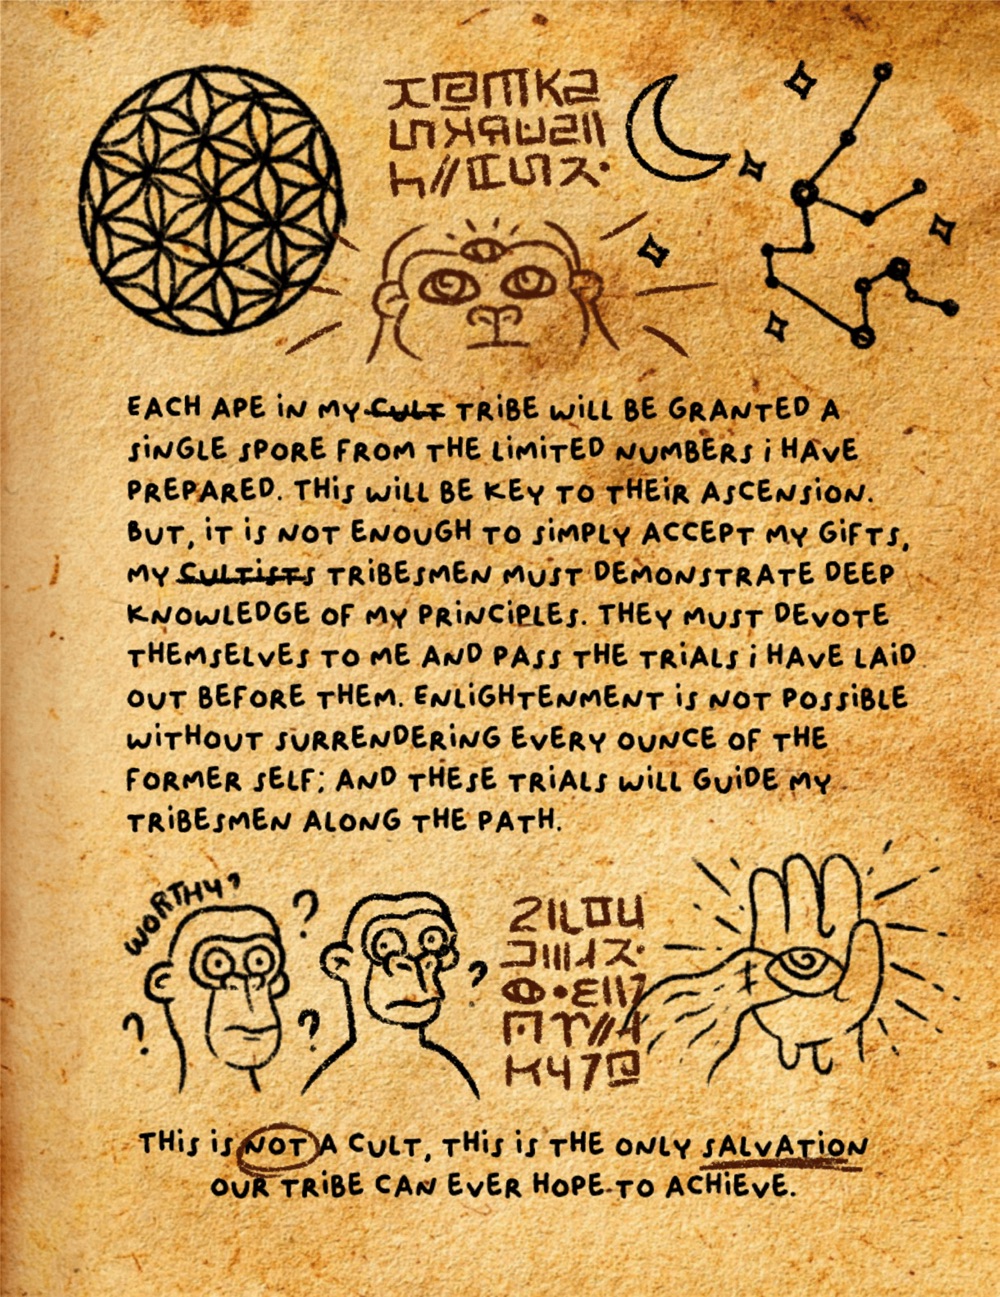 EACH APE iN MY CULT TRiBE WiLL BE GRANTED A
SiNGLE SPORE FROM THE LiMiTED NUMBERS i HAVE
PREPARED. THiS WiLL BE KEY TO THEiR ASCENSiON.
BUT, iT iS NOT ENOUGH TO SiMPLY ACCEPT MY GiFTS,
MY CULTiSTS TRiBESMEN MUST DEMONSTRATE DEEP
KNOWLEDGE OF MY PRiNCiPLES. THEY MUST DEVOTE
THEMSELVES TO ME AND PASS THE TRiALS i HAVE LAiD
OUT BEFORE THEM. ENLiGHTENMENT iS NOT POSSiBLE
WiTHOUT SURRENDERiNG EVERY OUNCE OF THE
FORMER SELF; AND THESE TRiALS WiLL GUiDE MY
TRiBESMEN ALONG THE PATH.
WORTHY?
? ? ? ?
THiS iS NOT A CULT, THiS iS THE ONLY SALVATiON
OUR TRiBE CAN EVER HOPE TO ACHiEVE.